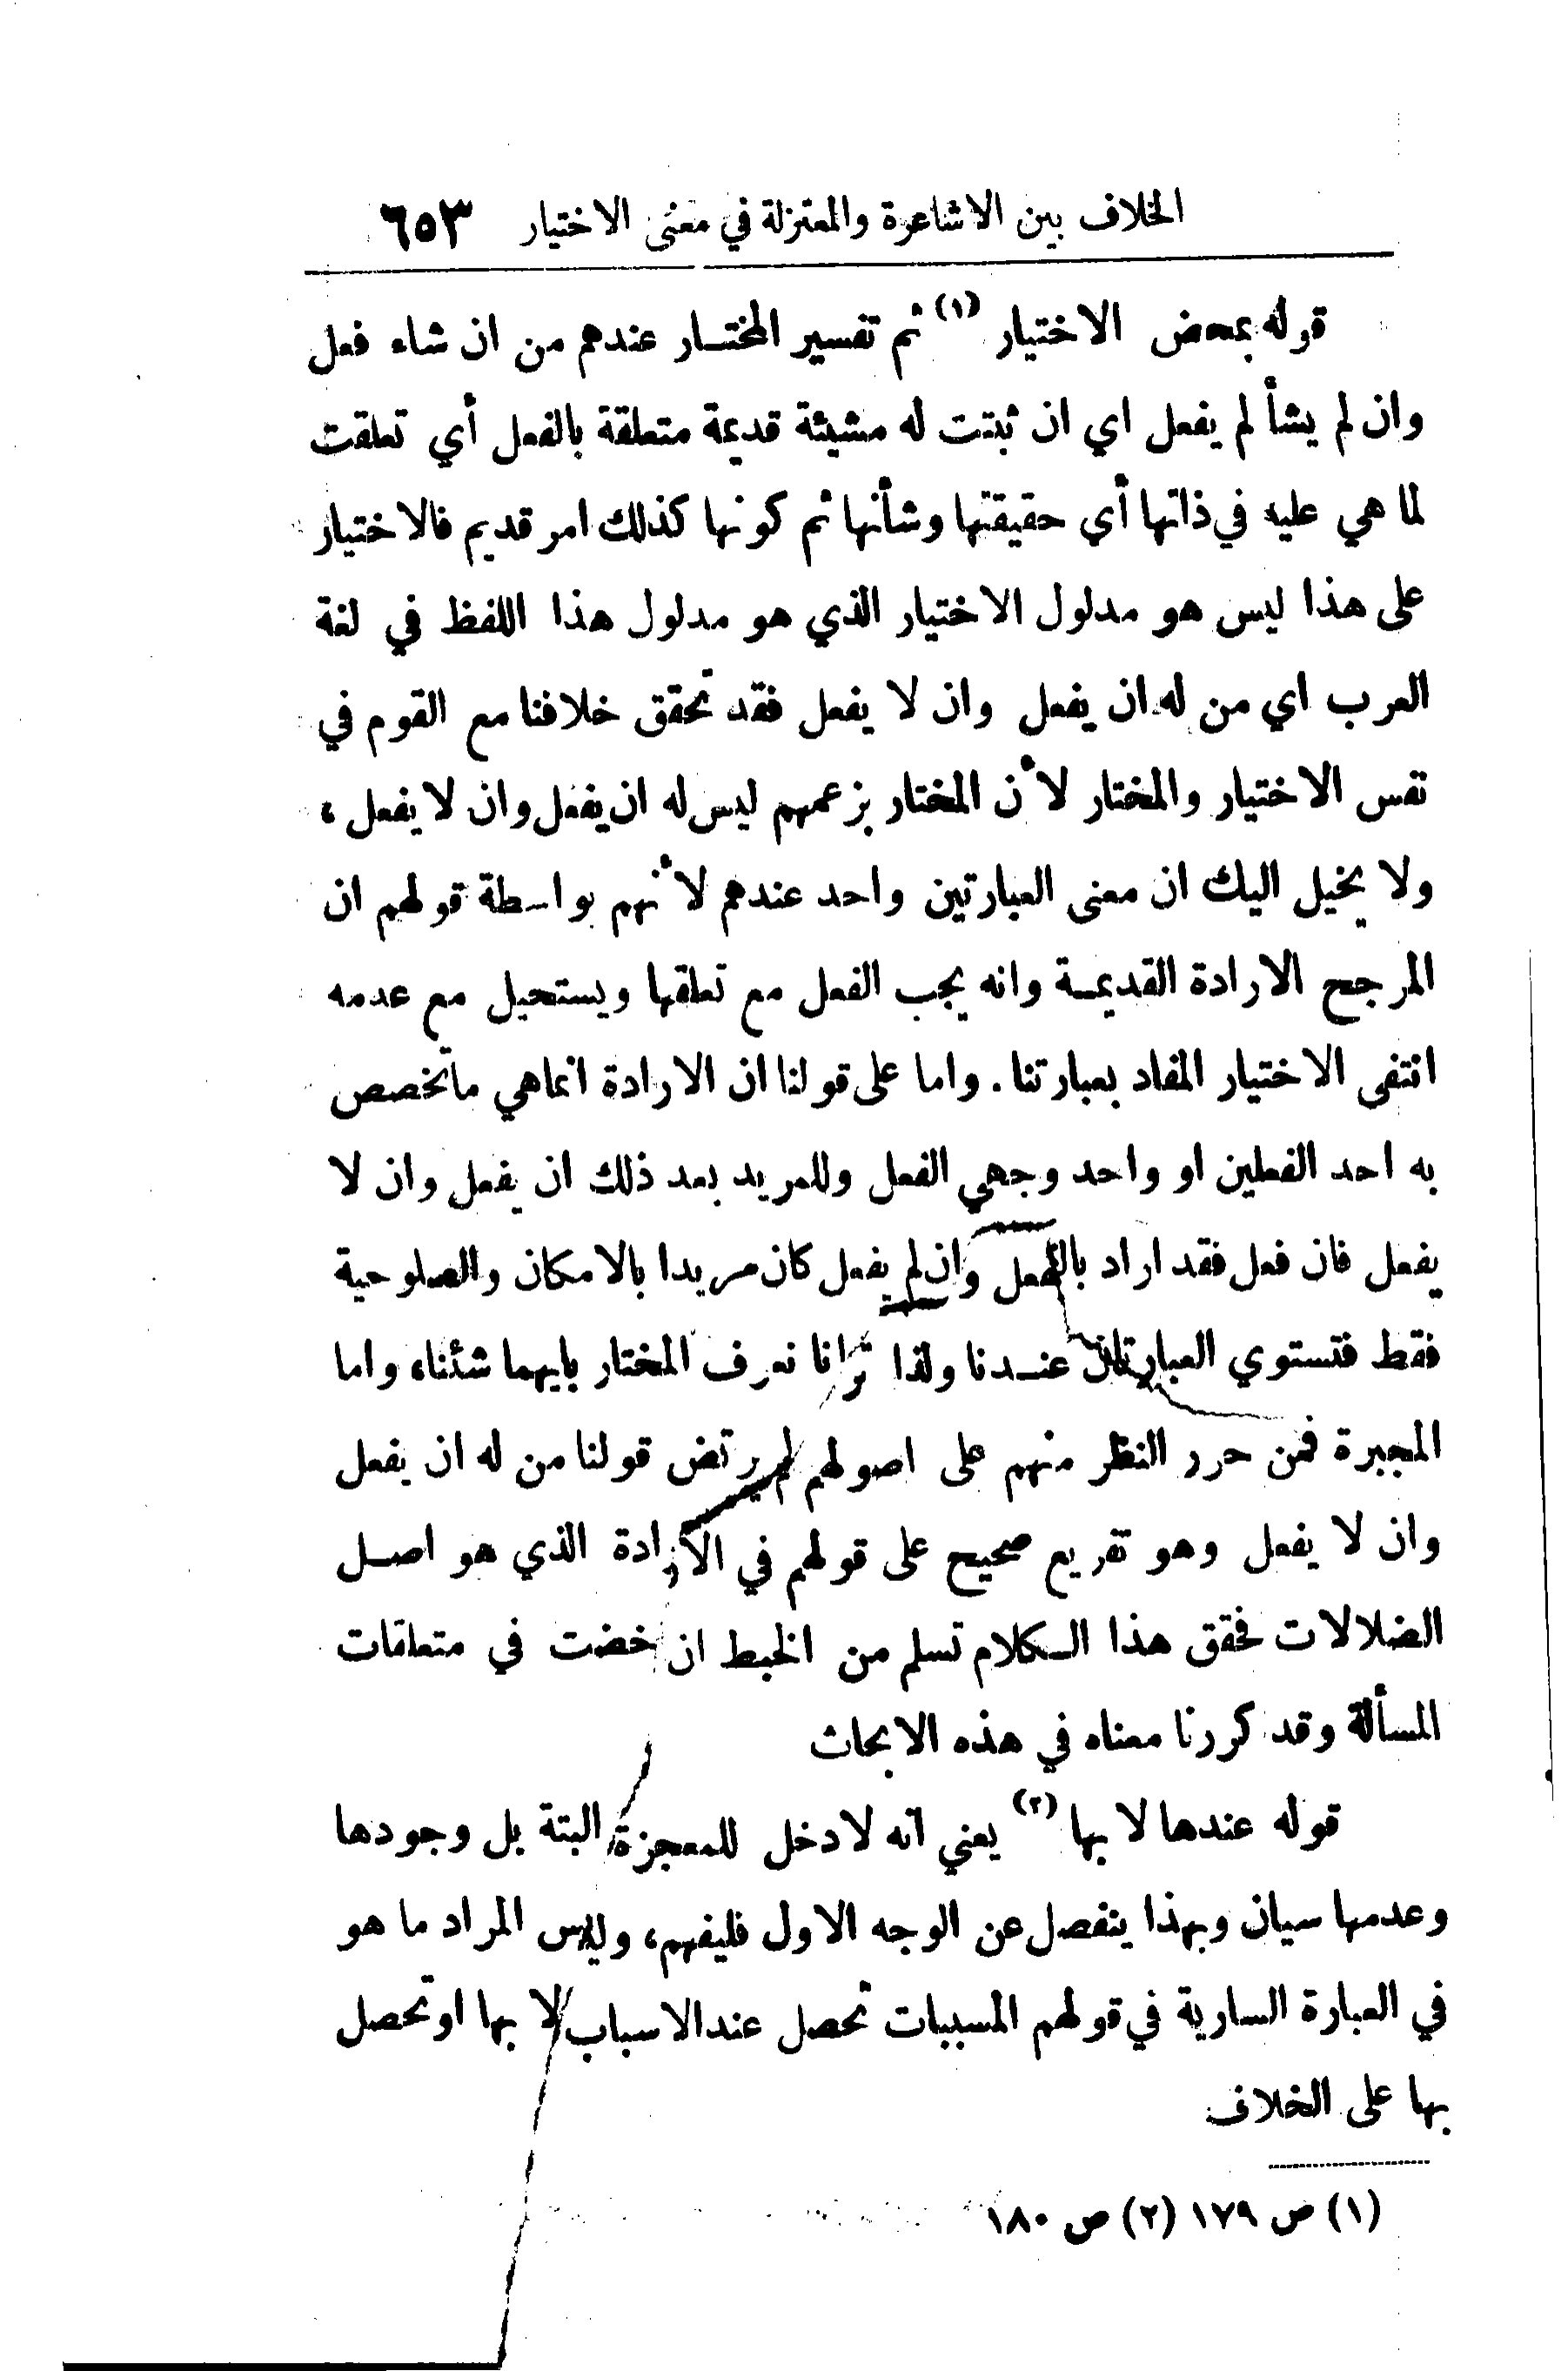 الخلاف بين الاشاعرة والمعتزلة في معنى الاختيار ٦٥٣
قوله بمحض الاختيار (١) ثم تفسير المختار عندهم من ان شاء فعل
وان لم يشأ لم يفعل اي ان ثبتت له مشيئة قديمة متعلقة بالفعل أي تعلقت
لما هي عليه في ذاتها أي حقيقتها وشأنها ثم كونها كذلك امر قديم فالاختيار
على هذا ليس هو مدلول الاختيار الذي هو مدلول هذا اللفظ في لغة
العرب اي من له ان يفعل وان لا يفعل فقد تحقق خلافنا مع القوم في
نفس الاختيار والمختار لأن المختار بزعمهم ليس له ان يفعل وان لا يفعل ،
ولا يخيل اليك ان معنى العبارتين واحد عندهم لأنهم بواسطة قولهم ان
المرجح الارادة القديمة وانه يجب الفعل مع تعلقها ويستحيل مع عدمه
انتفى الاختيار المفاد بعبارتنا . واما على قولنا ان الارادة انما هي ما تخصص
به احد الفعلين او واحد وجهي الفعل وللمريد بعد ذلك ان يفعل وان لا
يفعل فان فعل فقد اراد بالفعل وان لم يفعل كان مريدا بالامكان والصلوحية
فقط فتستوي العبارتان عندنا ولذا ترانا نعرف المختار بايهما شئنا، واما
المجبرة فمن حرر النظر منهم على اصولهم لم يرتض قولنا من له ان يفعل
وان لا يفعل وهو تفريع صحيح على قولهم في الارادة الذي هو اصل
الضلالات فحقق هذا الكلام تسلم من الخبط ان خضت في متعلقات
المسألة وقد كررنا معناه في هذه الابحاث
قوله عندها لا بها (٢) يعني انه لا دخل للمعجزة البتة بل وجودها
وعدمها سيان وبهذا ينفصل عن الوجه الاول فليفهم، وليس المراد ما هو
في العبارة السارية في قولهم المسببات تحصل عند الاسباب لا بها او تحصل
بها على الخلاف
(١) ص ١٧٩ (٢) ص ١٨٠